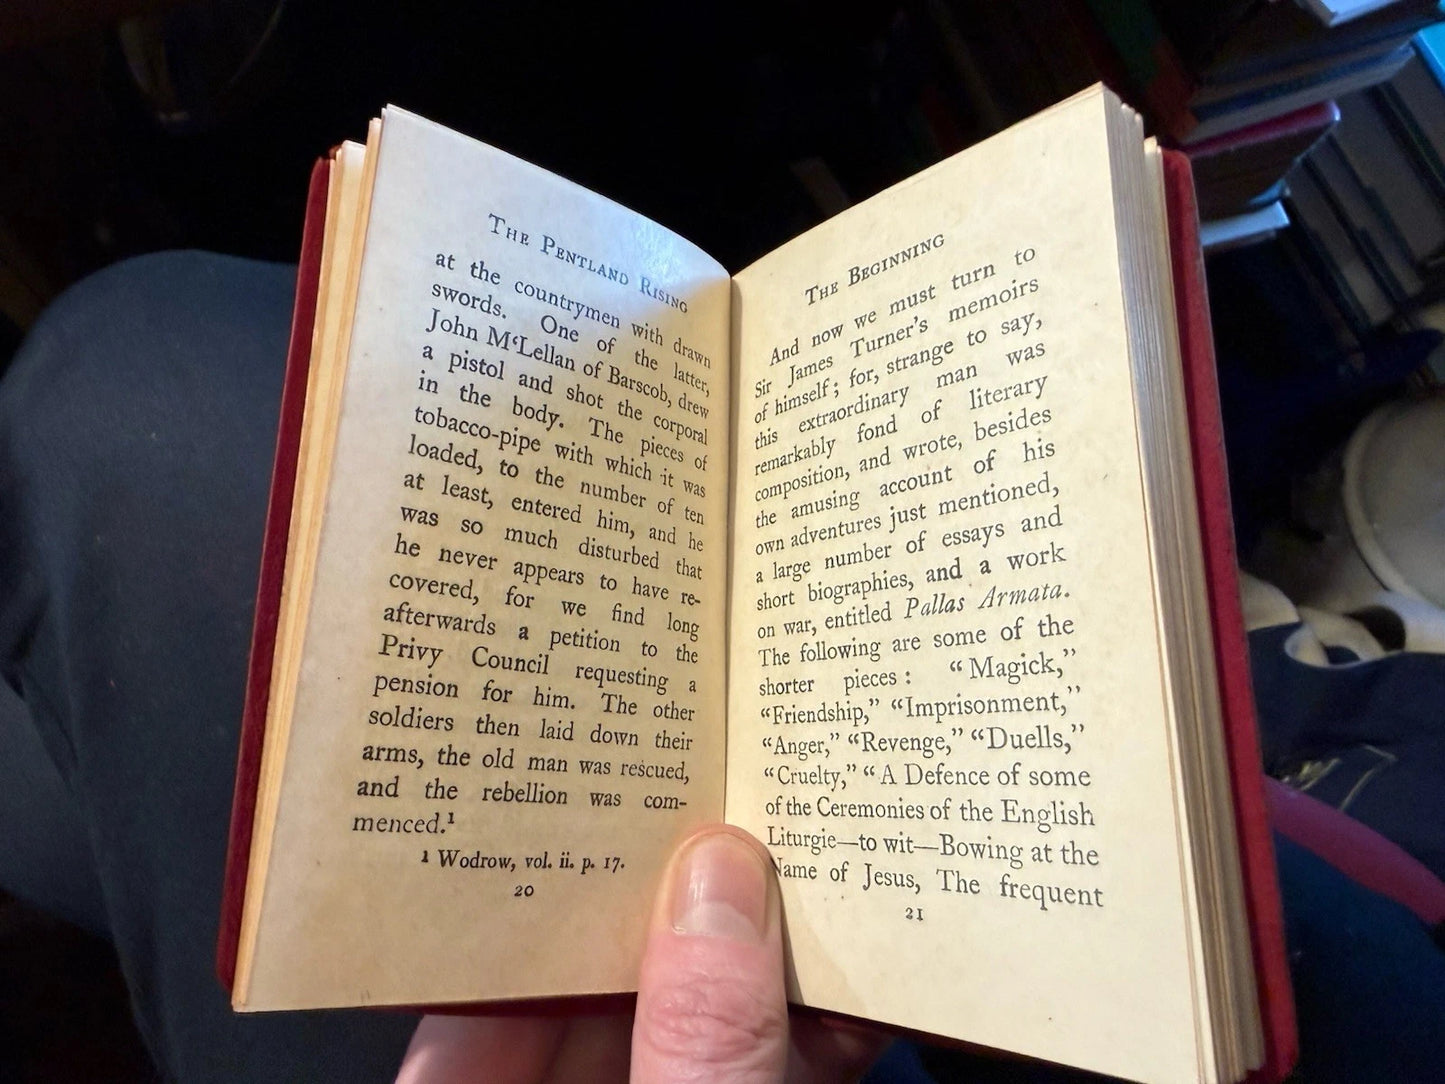 THE PENTLAND RISING
at the countrymen with drawn
swords. One of the latter,
John M‘Lellan of Barscob, drew
a pistol and shot the corporal
in the body. The pieces of
tobacco-pipe with which it was
loaded, to the number of ten
at least, entered him, and he
was so much disturbed that
he never appears to have re-
covered, for we find long
afterwards a petition to the
Privy Council requesting a
pension for him. The other
soldiers then laid down their
arms, the old man was rescued,
and the rebellion was com-
menced.¹
¹ Wodrow, vol. ii. p. 17.
20
THE BEGINNING
And now we must turn to
Sir James Turner’s memoirs
of himself; for, strange to say,
this extraordinary man was
remarkably fond of literary
composition, and wrote, besides
the amusing account of his
own adventures just mentioned,
a large number of essays and
short biographies, and a work
on war, entitled Pallas Armata.
The following are some of the
shorter pieces: “Magick,”
“Friendship,” “Imprisonment,”
“Anger,” “Revenge,” “Duells,”
“Cruelty,” “A Defence of some
of the Ceremonies of the English
Liturgie—to wit—Bowing at the
Name of Jesus, The frequent
21